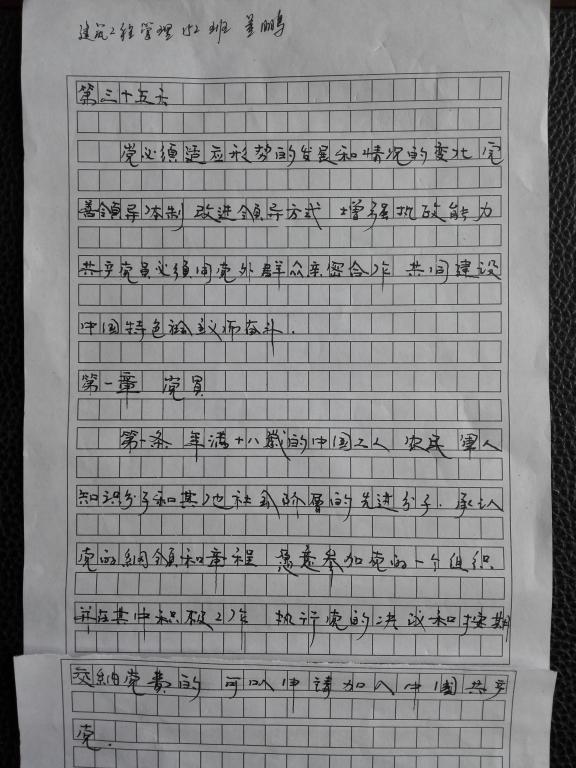 建筑工程管理152班 姜鹏
第三十五天
党必须适应形势的发展和情况的变化 完
善領导体制 改进領导方式 增强执政能力
共产党员必须同党外群众亲密合作 共同建设
中国特色社会主义而奋斗.
第一章 党員
第一条 年满十八歲的中国工人 农民 軍人
知识分子和其他社会阶層的先进分子.承认
党的綱領和章程 愿意参加党的一个组织
并在其中积极工作 执行党的决议和按期
交納党費的 可以申请加入中国共产
党.